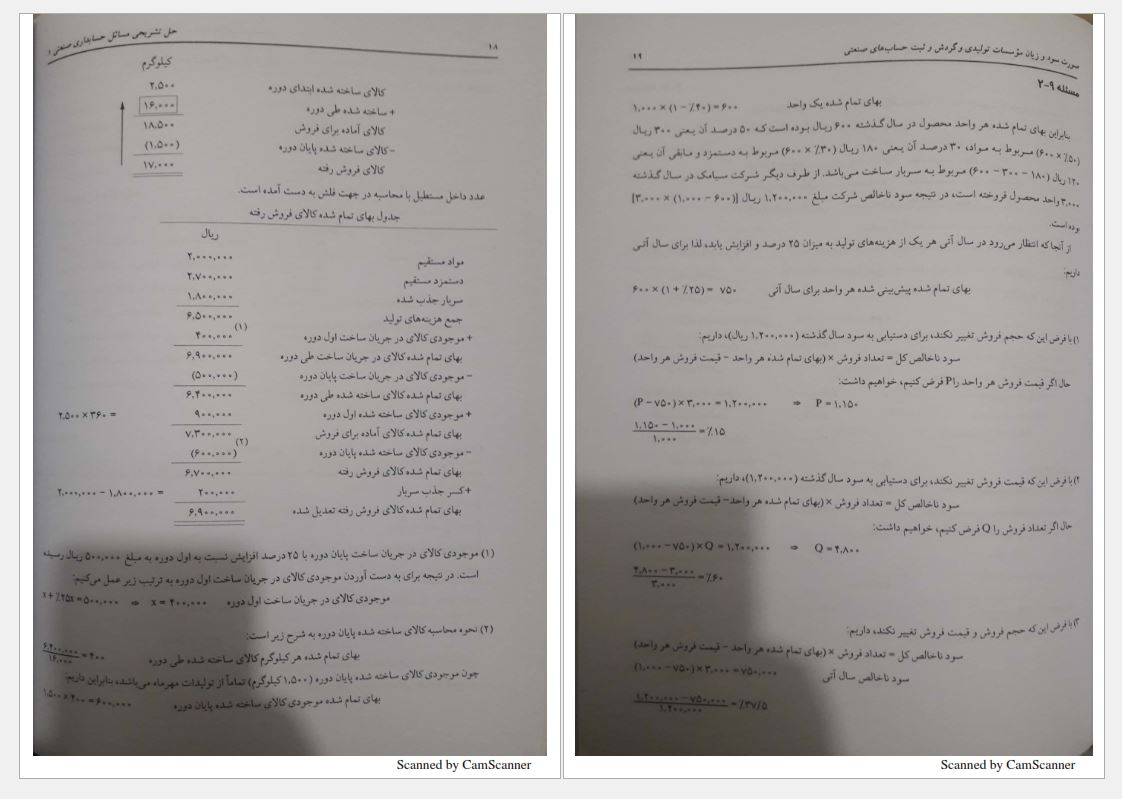 ۱۸
حل تشریحی مسائل حسابداری صنعتی ۱
کیلوگرم
کالای ساخته شده ابتدای دوره ۲,۵۰۰
+ ساخته شده طی دوره ۱۶,۰۰۰
کالای آماده برای فروش ۱۸,۵۰۰
– کالای ساخته شده پایان دوره (۱,۵۰۰)
کالای فروش رفته ۱۷,۰۰۰
عدد داخل مستطیل با محاسبه در جهت فلش به دست آمده است.
جدول بهای تمام شده کالای فروش رفته
ریال
مواد مستقیم ۲,۰۰۰,۰۰۰
دستمزد مستقیم ۲,۷۰۰,۰۰۰
سربار جذب شده ۱,۸۰۰,۰۰۰
جمع هزینه‌های تولید ۶,۵۰۰,۰۰۰
+ موجودی کالای در جریان ساخت اول دوره ۴۰۰,۰۰۰ (۱)
بهای تمام شده کالای در جریان ساخت طی دوره ۶,۹۰۰,۰۰۰
– موجودی کالای در جریان ساخت پایان دوره (۵۰۰,۰۰۰)
بهای تمام شده کالای ساخته شده طی دوره ۶,۴۰۰,۰۰۰
+ موجودی کالای ساخته شده اول دوره ۹۰۰,۰۰۰ = ۲,۵۰۰ × ۳۶۰
بهای تمام شده کالای آماده برای فروش ۷,۳۰۰,۰۰۰
– موجودی کالای ساخته شده پایان دوره (۶۰۰,۰۰۰) (۲)
بهای تمام شده کالای فروش رفته ۶,۷۰۰,۰۰۰
+کسر جذب سربار ۲۰۰,۰۰۰ = ۲,۰۰۰,۰۰۰ – ۱,۸۰۰,۰۰۰
بهای تمام شده کالای فروش رفته تعدیل شده ۶,۹۰۰,۰۰۰
(۱) موجودی کالای در جریان ساخت پایان دوره با ۲۵ درصد افزایش نسبت به اول دوره به مبلغ ۵۰۰,۰۰۰ ریال رسیده
است. در نتیجه برای به دست آوردن موجودی کالای در جریان ساخت اول دوره به ترتیب زیر عمل می‌کنیم:
موجودی کالای در جریان ساخت اول دوره x + ٪۲۵x = ۵۰۰,۰۰۰ ⇒ x = ۴۰۰,۰۰۰
(۲) نحوه محاسبه کالای ساخته شده پایان دوره به شرح زیر است:
بهای تمام شده هر کیلوگرم کالای ساخته شده طی دوره ۶,۴۰۰,۰۰۰ / ۱۶,۰۰۰ = ۴۰۰
چون موجودی کالای ساخته شده پایان دوره (۱,۵۰۰ کیلوگرم) تماماً از تولیدات مهرماه می‌باشد، بنابراین داریم:
بهای تمام شده موجودی کالای ساخته شده پایان دوره ۱,۵۰۰ × ۴۰۰ = ۶۰۰,۰۰۰
Scanned by CamScanner
صورت سود و زیان مؤسسات تولیدی و گردش و ثبت حساب‌های صنعتی
۱۹
مسئله ۹-۲
بهای تمام شده یک واحد ۱,۰۰۰ × (۱ – ٪۴۰) = ۶۰۰
بنابراین بهای تمام شده هر واحد محصول در سال گذشته ۶۰۰ ریال بوده است که ۵۰ درصد آن یعنی ۳۰۰ ریال
(۶۰۰ × ٪۵۰) مربوط به مواد، ۳۰ درصد آن یعنی ۱۸۰ ریال (۶۰۰ × ٪۳۰) مربوط به دستمزد و مابقی آن یعنی
۱۲۰ ریال (۱۸۰ – ۳۰۰ – ۶۰۰) مربوط به سربار ساخت می‌باشد. از طرف دیگر شرکت سیامک در سال گذشته
۳,۰۰۰ واحد محصول فروخته است، در نتیجه سود ناخالص شرکت مبلغ ۱,۲۰۰,۰۰۰ ریال [(۶۰۰ – ۱,۰۰۰) × ۳,۰۰۰]
بوده است.
از آنجا که انتظار می‌رود در سال آتی هر یک از هزینه‌های تولید به میزان ۲۵ درصد و افزایش یابد، لذا برای سال آتی
داریم:
بهای تمام شده پیش‌بینی شده هر واحد برای سال آتی ۶۰۰ × (۱ + ٪۲۵) = ۷۵۰
۱) با فرض این که حجم فروش تغییر نکند، برای دستیابی به سود سال گذشته (۱,۲۰۰,۰۰۰ ریال)، داریم:
سود ناخالص کل = تعداد فروش × (بهای تمام شده هر واحد – قیمت فروش هر واحد)
حال اگر قیمت فروش هر واحد را P فرض کنیم، خواهیم داشت:
(P – ۷۵۰) × ۳,۰۰۰ = ۱,۲۰۰,۰۰۰ ⇒ P = ۱,۱۵۰
۱,۱۵۰ – ۱,۰۰۰ / ۱,۰۰۰ = ٪۱۵
۲) با فرض این که قیمت فروش تغییر نکند، برای دستیابی به سود سال گذشته (۱,۲۰۰,۰۰۰)، داریم:
سود ناخالص کل = تعداد فروش × (بهای تمام شده هر واحد – قیمت فروش هر واحد)
حال اگر تعداد فروش را Q فرض کنیم، خواهیم داشت:
(۱,۰۰۰ – ۷۵۰) × Q = ۱,۲۰۰,۰۰۰ ⇒ Q = ۴,۸۰۰
۴,۸۰۰ – ۳,۰۰۰ / ۳,۰۰۰ = ٪۶۰
۳) با فرض این که حجم فروش و قیمت فروش تغییر نکند، داریم:
سود ناخالص کل = تعداد فروش × (بهای تمام شده هر واحد – قیمت فروش هر واحد)
سود ناخالص سال آتی (۱,۰۰۰ – ۷۵۰) × ۳,۰۰۰ = ۷۵۰,۰۰۰
۱,۲۰۰,۰۰۰ – ۷۵۰,۰۰۰ / ۱,۲۰۰,۰۰۰ = ٪۳۷/۵
Scanned by CamScanner